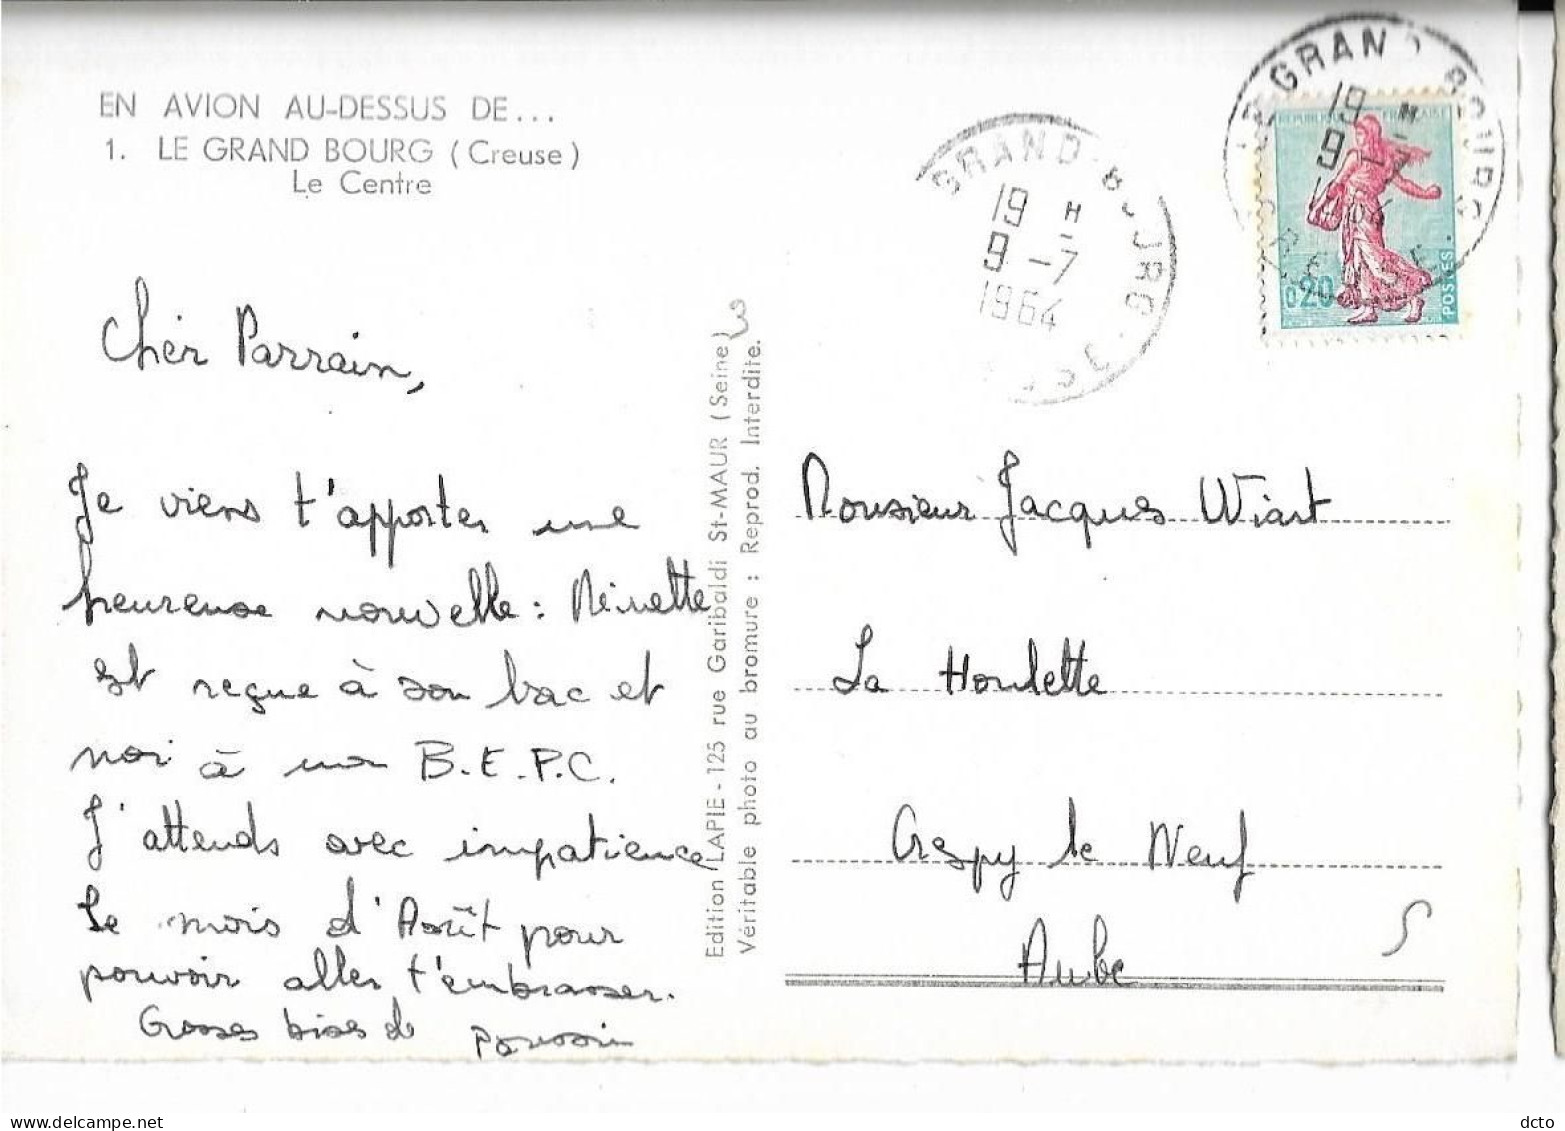 EN AVION AU-DESSUS DE...
1. LE GRAND BOURG (Creuse)
Le Centre
Cher Parrain,
Je viens t'apporter une
heureuse nouvelle : Ninette
est reçue à son bac et
moi à mon B.E.P.C.
J'attends avec impatience
Le mois d'Août pour
pouvoir aller t'embrasser.
Grosses bises de Poussin
Edition LAPIE - 125 rue Garibaldi St-MAUR (Seine)
Véritable photo au bromure : Reprod. Interdite.
GRAND-BOURG
19 H
9-7
1964
LE GRAND BOURG
19 H
9-7
1964
CREUSE
REPUBLIQUE FRANÇAISE
0,20
POSTES
Monsieur Jacques Wiart
La Houlette
Crespy le Neuf
Aube
delcampe.net
dcto